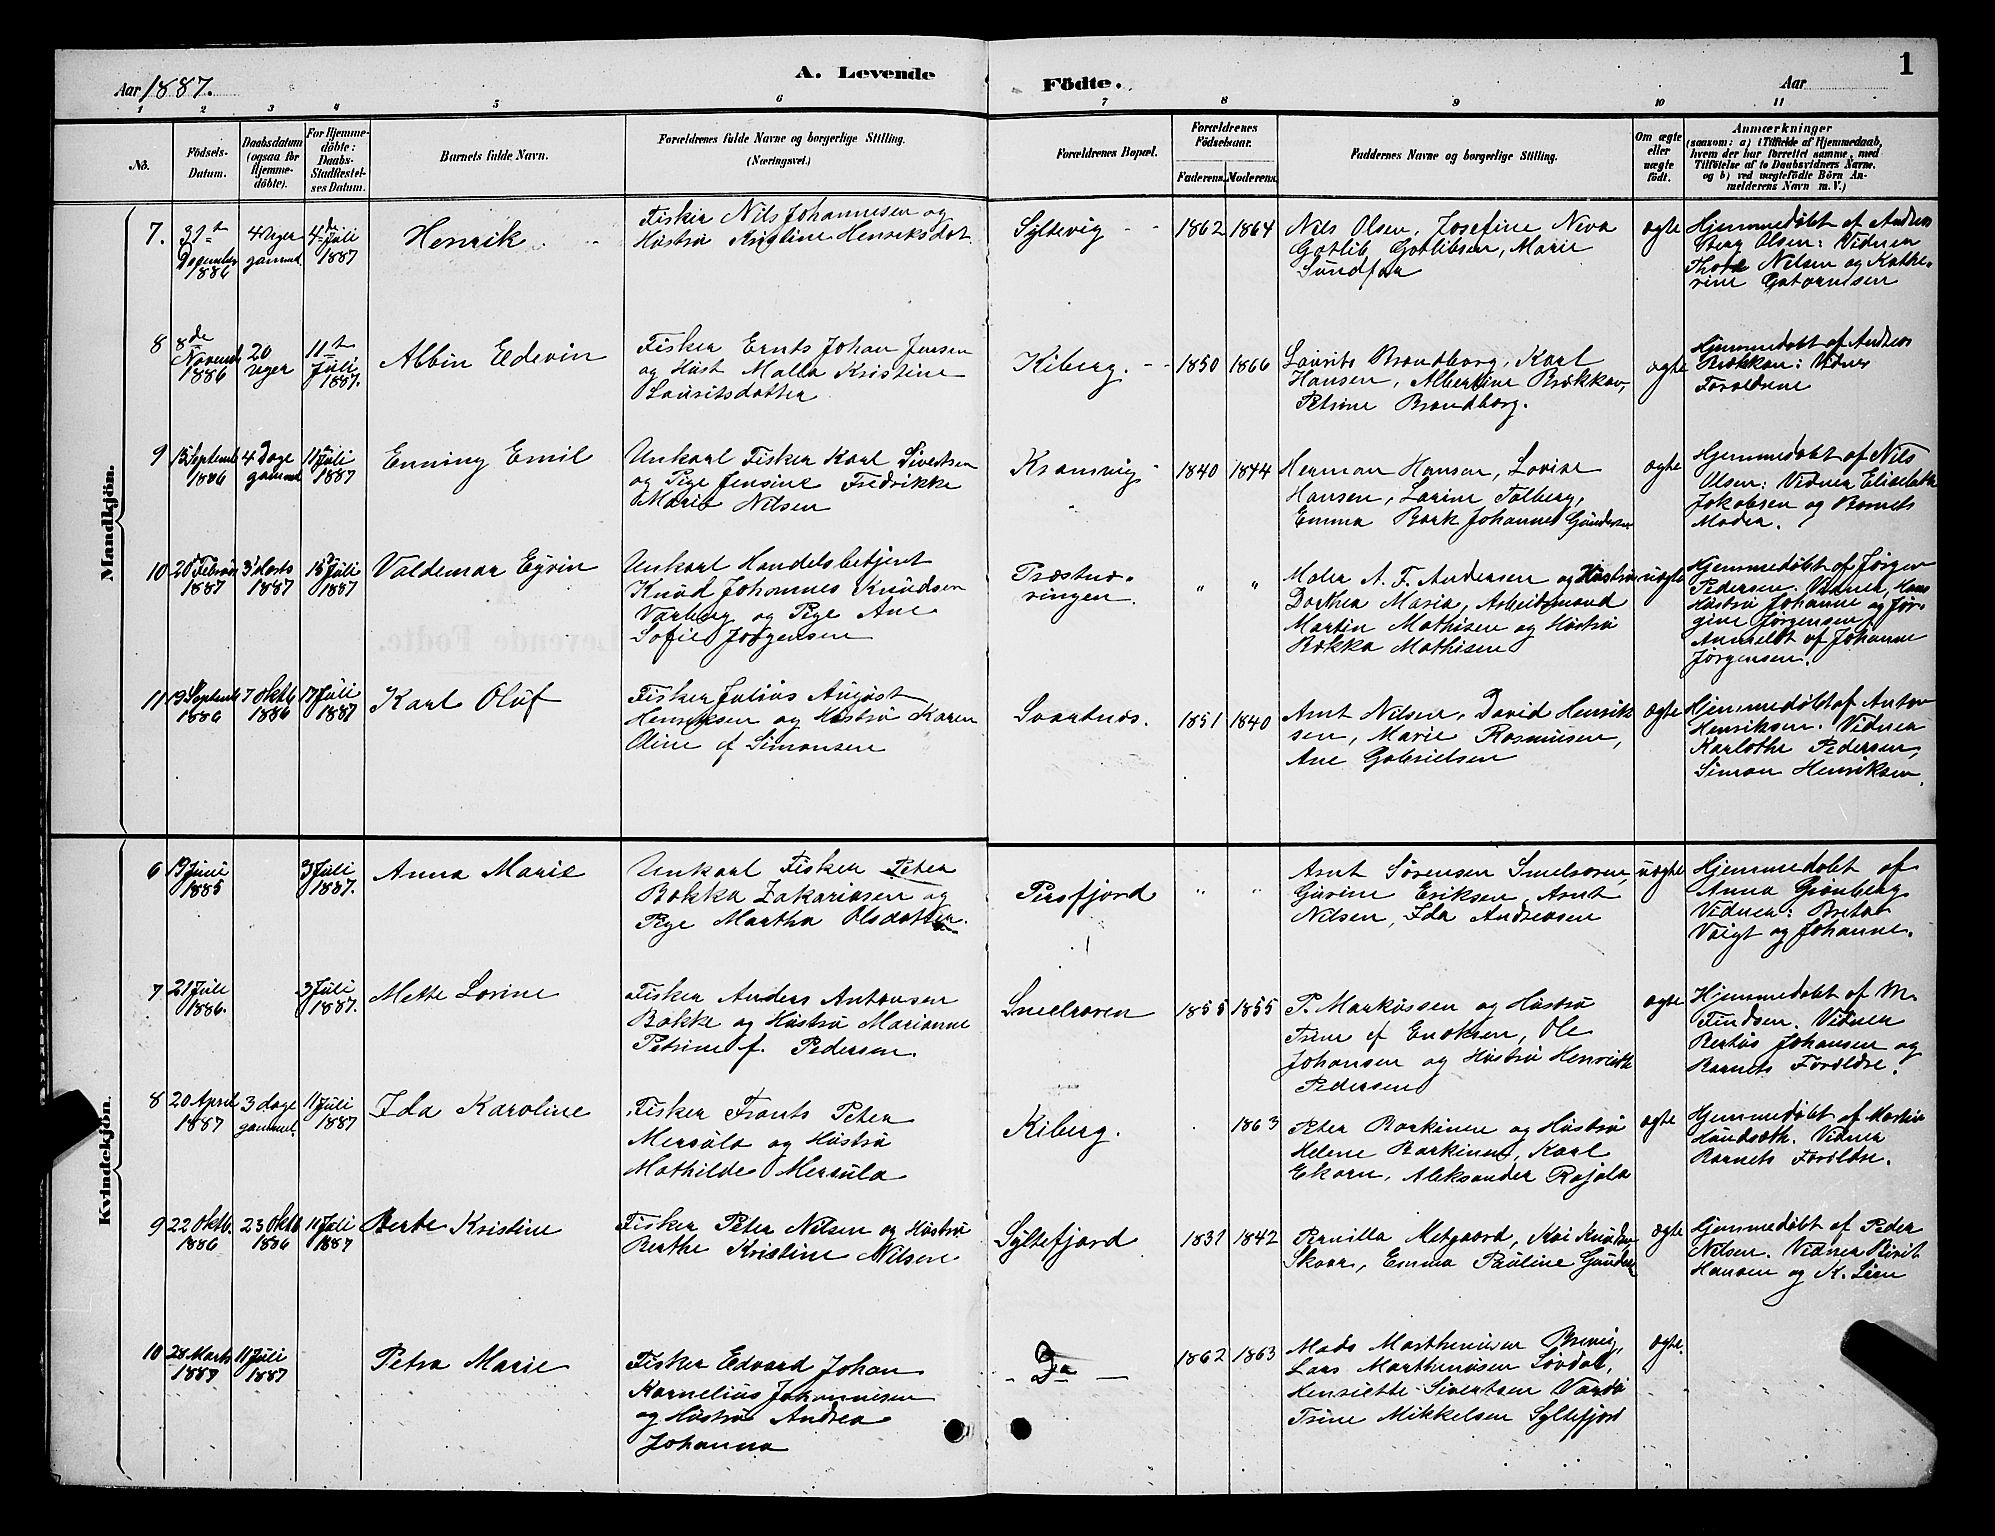 Aar 1887.
A. Levende
Födte.
Aar
1
1 2 3 4 5 6 7 8 9 10 11
Nö.
Födsels-
Datum.
Daabsdatum
(ogsaa for
Hjemme-
döbte).
For Hjemme-
döbte:
Daabs-
Stadfæstel-
ses Datum.
Barnets fulde Navn.
Forældrenes fulde Navne og borgerlige Stilling.
(Næringsvei.)
Forældrenes Bopæl.
Forældrenes
Födselsaar.
Faderens. Moderens.
Faddernes Navne og borgerlige Stilling.
Om ægte
eller
uægte
födt.
Anmærkninger
(saasom: a) i Tilfælde af Hjemmedaab,
hvem der har forrettet samme, med
Tilföielse af to Daabsvidners Navne.
og b) ved uægtefödte Börn An-
melderens Navn m. V.)
Mandkjön.
7.
31te
December
1886
4 Uger
gammel
4de
Juli
1887
Henrik
Fisker Nils Johannesen og
Hustru Kristine Henriksdat
Syltevig
1862 1864
Nils Olsen, Josefine Neva
Gotlib Gotlibsen, Marie
Sundfær
ægte
Hjemmedøbt af Andreas
Berg Olsen: Vidner
Thore Nilsen og Kathe-
rine
8
8de
Novemb
1886
20
uger
11te
Juli
1887.
Albin Edevin
Fisker Ernts Johan Jensen
og Hust Malla Kristine
Lauritsdatter
Kiberg.
1850 1866
Laurits Brandborg, Karl
Hansen, Albertine Brækkan,
Petrine Brandborg.
ægte
Hjemmedøbt af Andreas
Brækkan: Vidner
Forældrene
9
13 Septemb
1886
4 Dage
gammel
11 Juli
1887
Enning Emil
Unkarl Fisker Karl Sivertsen
og Pige Jensine Fredrikke
Marie Nilsen
Kramvig
1840 1844
Herman Hansen, Lovise
Hansen, Larine Tolberg,
Emma Bark Johanne Gundersen
ægte
Hjemmedøbt af Nils
Olsen: Vidner Elisabeth
Jakobsen og Barnets
Moder.
10
20 Februar
1887
3 Marts
1887
15 Juli
1887
Valdemar Eyvin
Unkarl Handelsbetjent
Knud Johannes Knudsen
Varberg og Pige Ane
Sofie Jørgensen
Præstnæ-
ringen.
" "
Maler A. F. Andersen og Hustru
Dorthea Maria, Arbeidsmand
Martin Mathisen og Hustru
Bokka Mathisen
uægte
Hjemmedøbt af Jørgen
Pedersen. Vidner, Hans
Hustru Johanne og Jør-
gine Jørgensen.
Anmeldt af Johanne
Jørgensen.
11
19 Septemb
1886
7 Oktb
1886
17 Juli
1887
Karl Oluf
Fisker Julius August
Henriksen og Hustru Karen
Oline f Simonsen
Svartnæs.
1851 1840
Arnt Nilsen, David Henrik
sen, Marie Rasmusen,
Ane Gabrielsen
ægte
Hjemmedøbt af Anton
Henriksen. Vidner
Karlothe Pedersen,
Simon Henriksen.
Kvindekjön.
6
19 Juni
1885
3 Juli
1887.
Anna Marie
Unkarl Fisker Peter
Bokka Zakariasen og
Pige Martha Olsdatter.
Persfjord
" "
Arnt Sørensen Smelroren,
Gurine Eriksen, Arnt
Nilsen, Ida Andreasen
uægte
Hjemmedøbt af
Anna Grønberg
Vidner: Breta
Voigt og Johanne.
7
21 Juli
1886.
3 Juli
1887.
Mette Lovine
Fisker Anders Antonsen
Bakke og Hustru Marianne
Petrine f. Pedersen.
Smelroren
1855 1855
P. Markussen og Hustru
Trine f Enoksen, Ole
Johansen og Hustru Henriette
Pedersen
ægte
Hjemmedøbt af M.
Findsen. Vidner
Bertus Johansen og
Barnets Forældre.
8
20 April
1887
3 dage
gammel.
11 Juli
1887
Ida Karoline
Fisker Frants Peter
Mersula og Hustru
Mathilde Mersula
Kiberg.
1863
Peter Barkinen og Hustru
Helene Barkinen, Karl
Ekorn, Aleksander Rajala
ægte
Hjemmedøbt af Martin
Hundsæth. Vidner
Barnets Forældre.
9
22 Oktb.
1886
23 Oktb
1886
11 Juli
1887
Berte Kristine
Fisker Peter Nilsen og Hustru
Berthe Kristine Nilsen
Syltefjord
1831 1842
Pernilla Metgaard, Kai Knudsen
Skaar, Emma Pauline Gundersen
ægte
Hjemmedøbt af Peder
Nilsen. Vidner Birit
Hansen og K. Siem
10
28 Marts
1887
11 Juli
1887
Petra Marie
Fisker Edvard Johan
Kornelius Johannesen
og Hustru Andrea
Johanna
- Do -
1862 1863
Mads Marthenusen Brevig,
Lars Marthenusen Løvdal,
Henriette Sivertsen Vardø
Trine Mikkelsen Syltefjord
ægte.